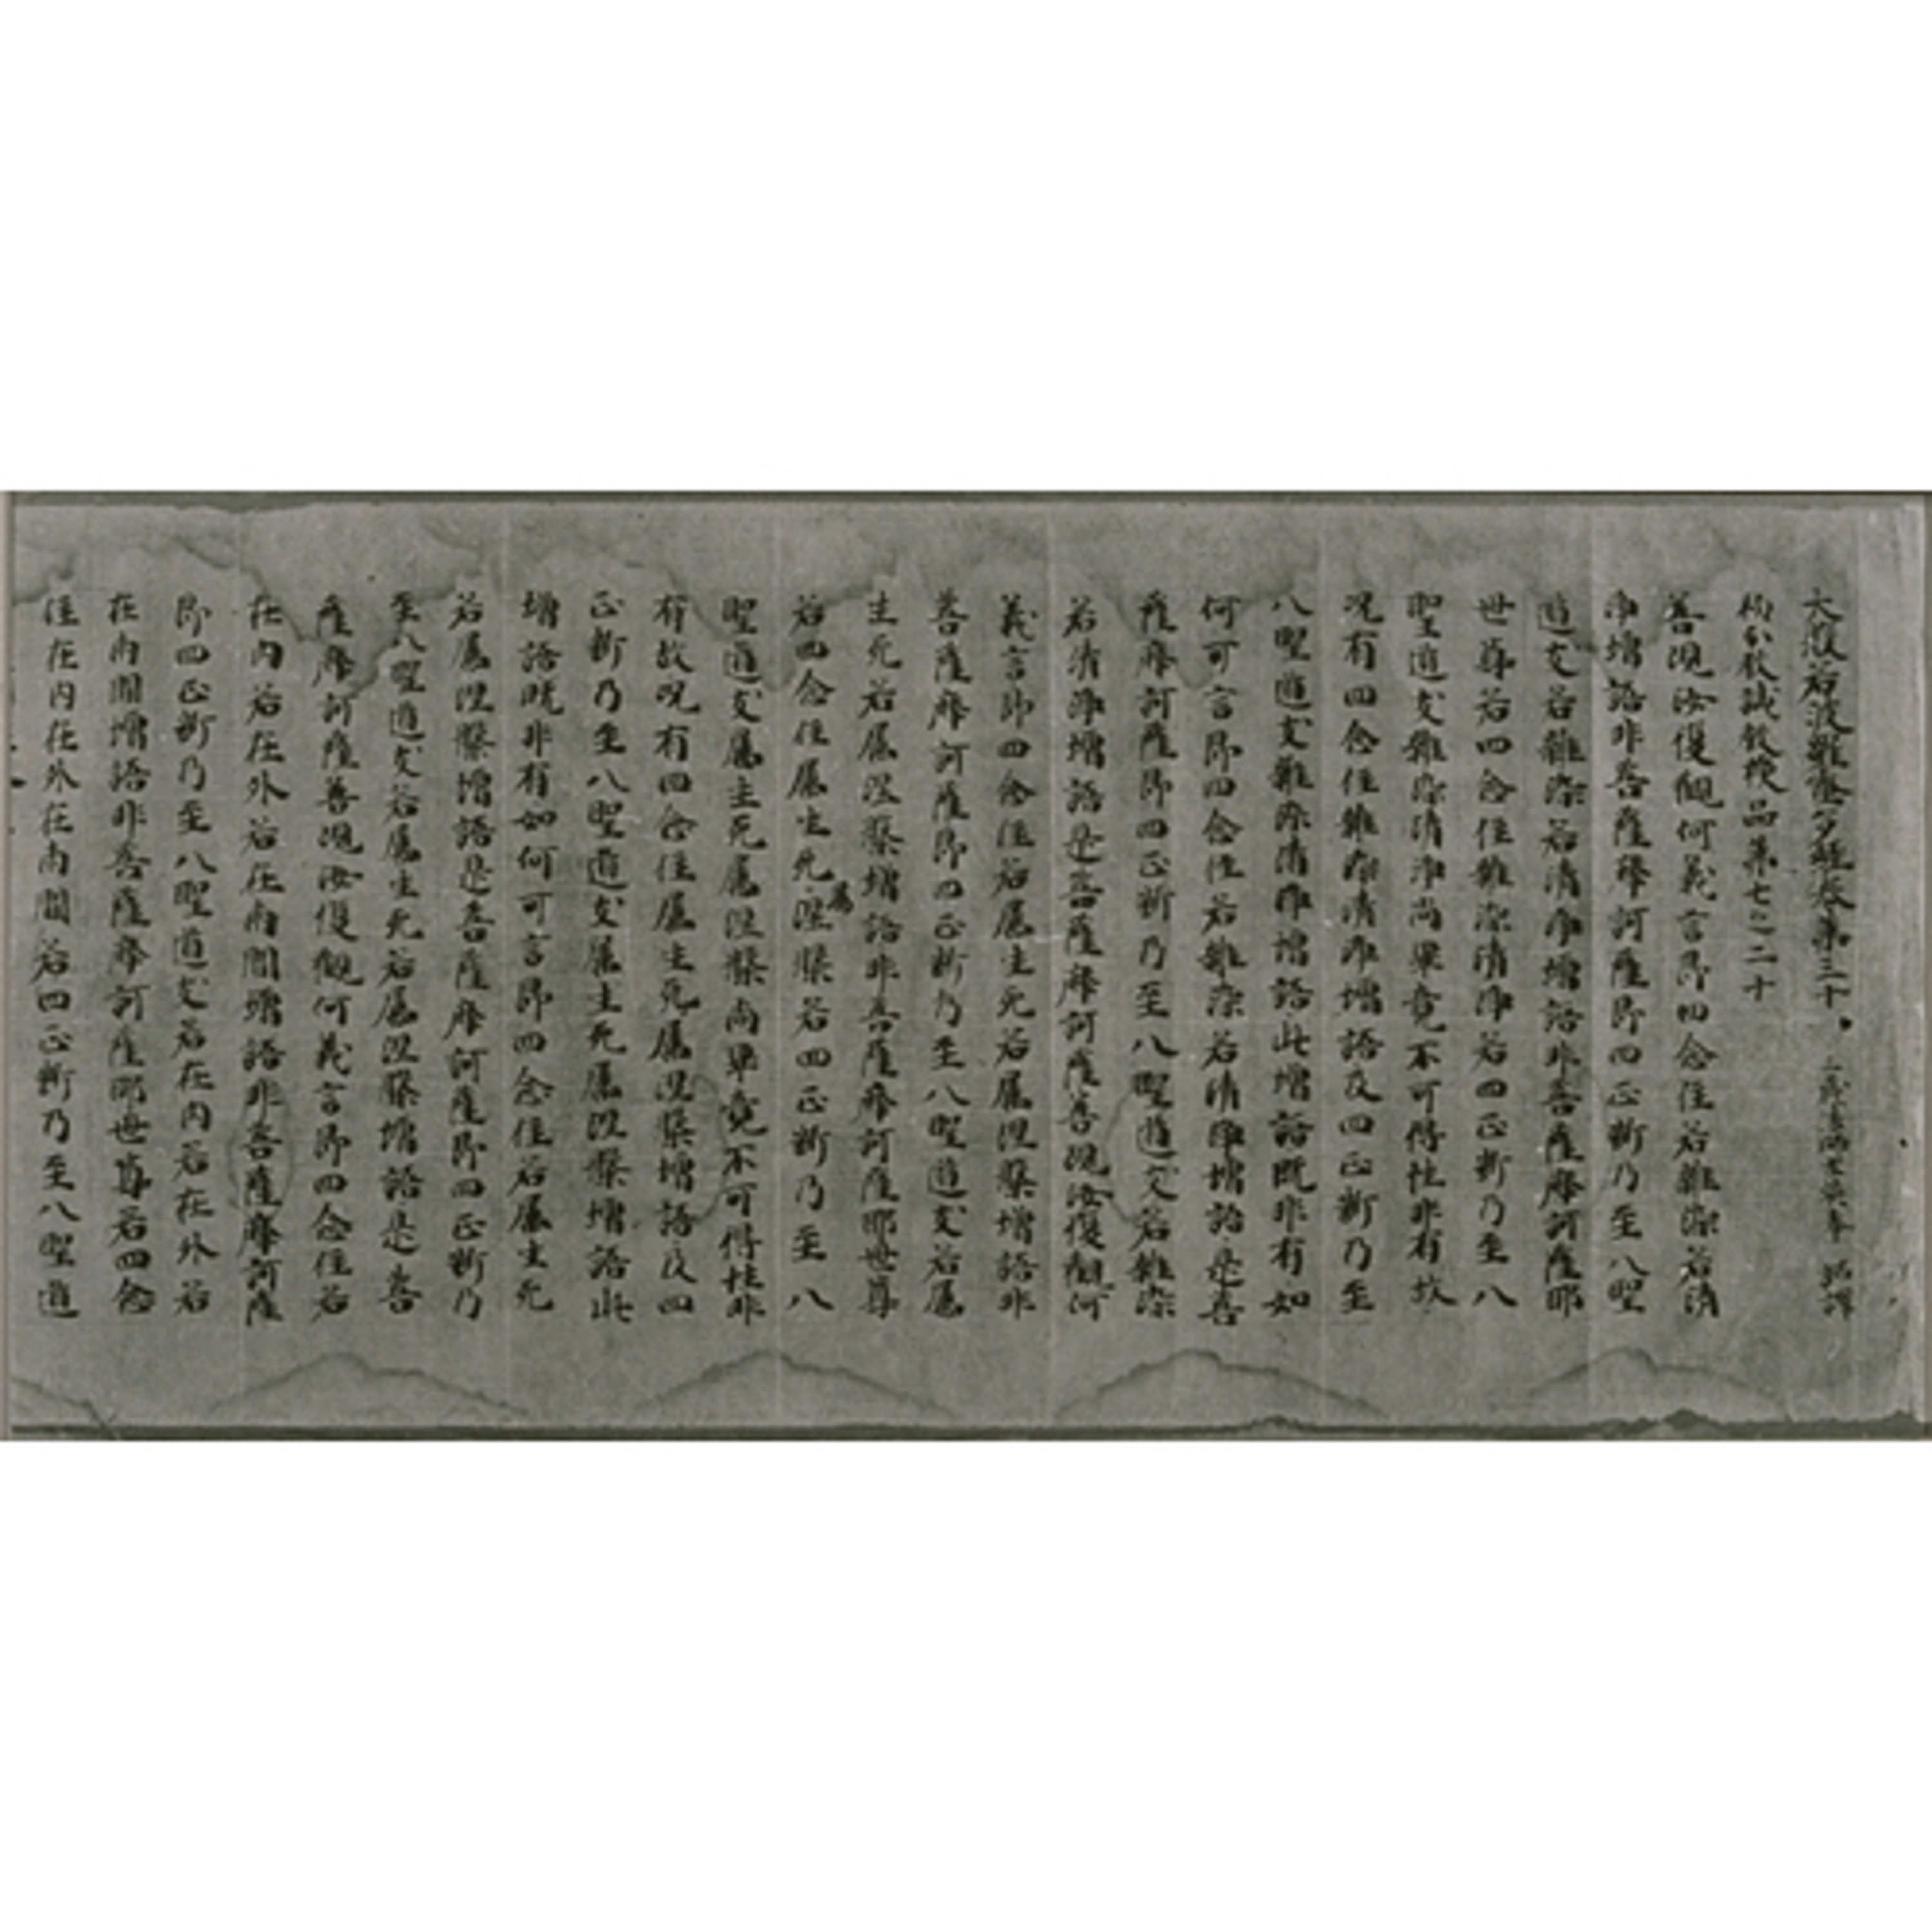 大般若波羅蜜多經卷第三十 三藏法師玄奘奉 詔譯
初分教誡教授品第七之二十
善現汝復觀何義言即四念住若雜染若清
淨增語非菩薩摩訶薩即四正斷乃至八聖
道支若雜染若清淨增語非菩薩摩訶薩耶
世尊若四念住雜染清淨若四正斷乃至八
聖道支雜染清淨尚畢竟不可得性非有故
況有四念住雜染清淨增語及四正斷乃至
八聖道支雜染清淨增語此增語既非有如
何可言即四念住若雜染若清淨增語是菩
薩摩訶薩即四正斷乃至八聖道支若雜染
若清淨增語是菩薩摩訶薩善現汝復觀何
義言即四念住若屬生死若屬涅槃增語非
菩薩摩訶薩即四正斷乃至八聖道支若屬
生死若屬涅槃增語非菩薩摩訶薩耶世尊
若四念住屬生死屬涅槃若四正斷乃至八
聖道支屬生死屬涅槃尚畢竟不可得性非
有故況有四念住屬生死屬涅槃增語及四
正斷乃至八聖道支屬生死屬涅槃增語此
增語既非有如何可言即四念住若屬生死
若屬涅槃增語是菩薩摩訶薩即四正斷乃
至八聖道支若屬生死若屬涅槃增語是菩
薩摩訶薩善現汝復觀何義言即四念住若
在內若在外若在兩間增語非菩薩摩訶薩
即四正斷乃至八聖道支若在內若在外若
在兩間增語非菩薩摩訶薩耶世尊若四念
住在內在外在兩間若四正斷乃至八聖道